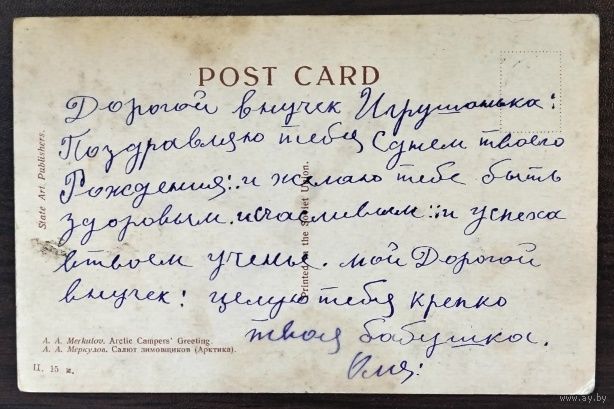 POST CARD
Дорогой внучек Игрушонька:
Поздравляю тебя с днем твоего
Рождения: и желаю тебе быть
здоровым. и счасливым: и успеха
в твоем ученье. мой Дорогой
внучек: целую тебя крепко
твоя бабушка.
Оля:
State Art Publishers.
Printed in the Soviet Union.
A. A. Merkulov. Arctic Campers' Greeting.
А. А. Меркулов. Салют зимовщиков (Арктика).
Ц. 15 к.
www.ay.by